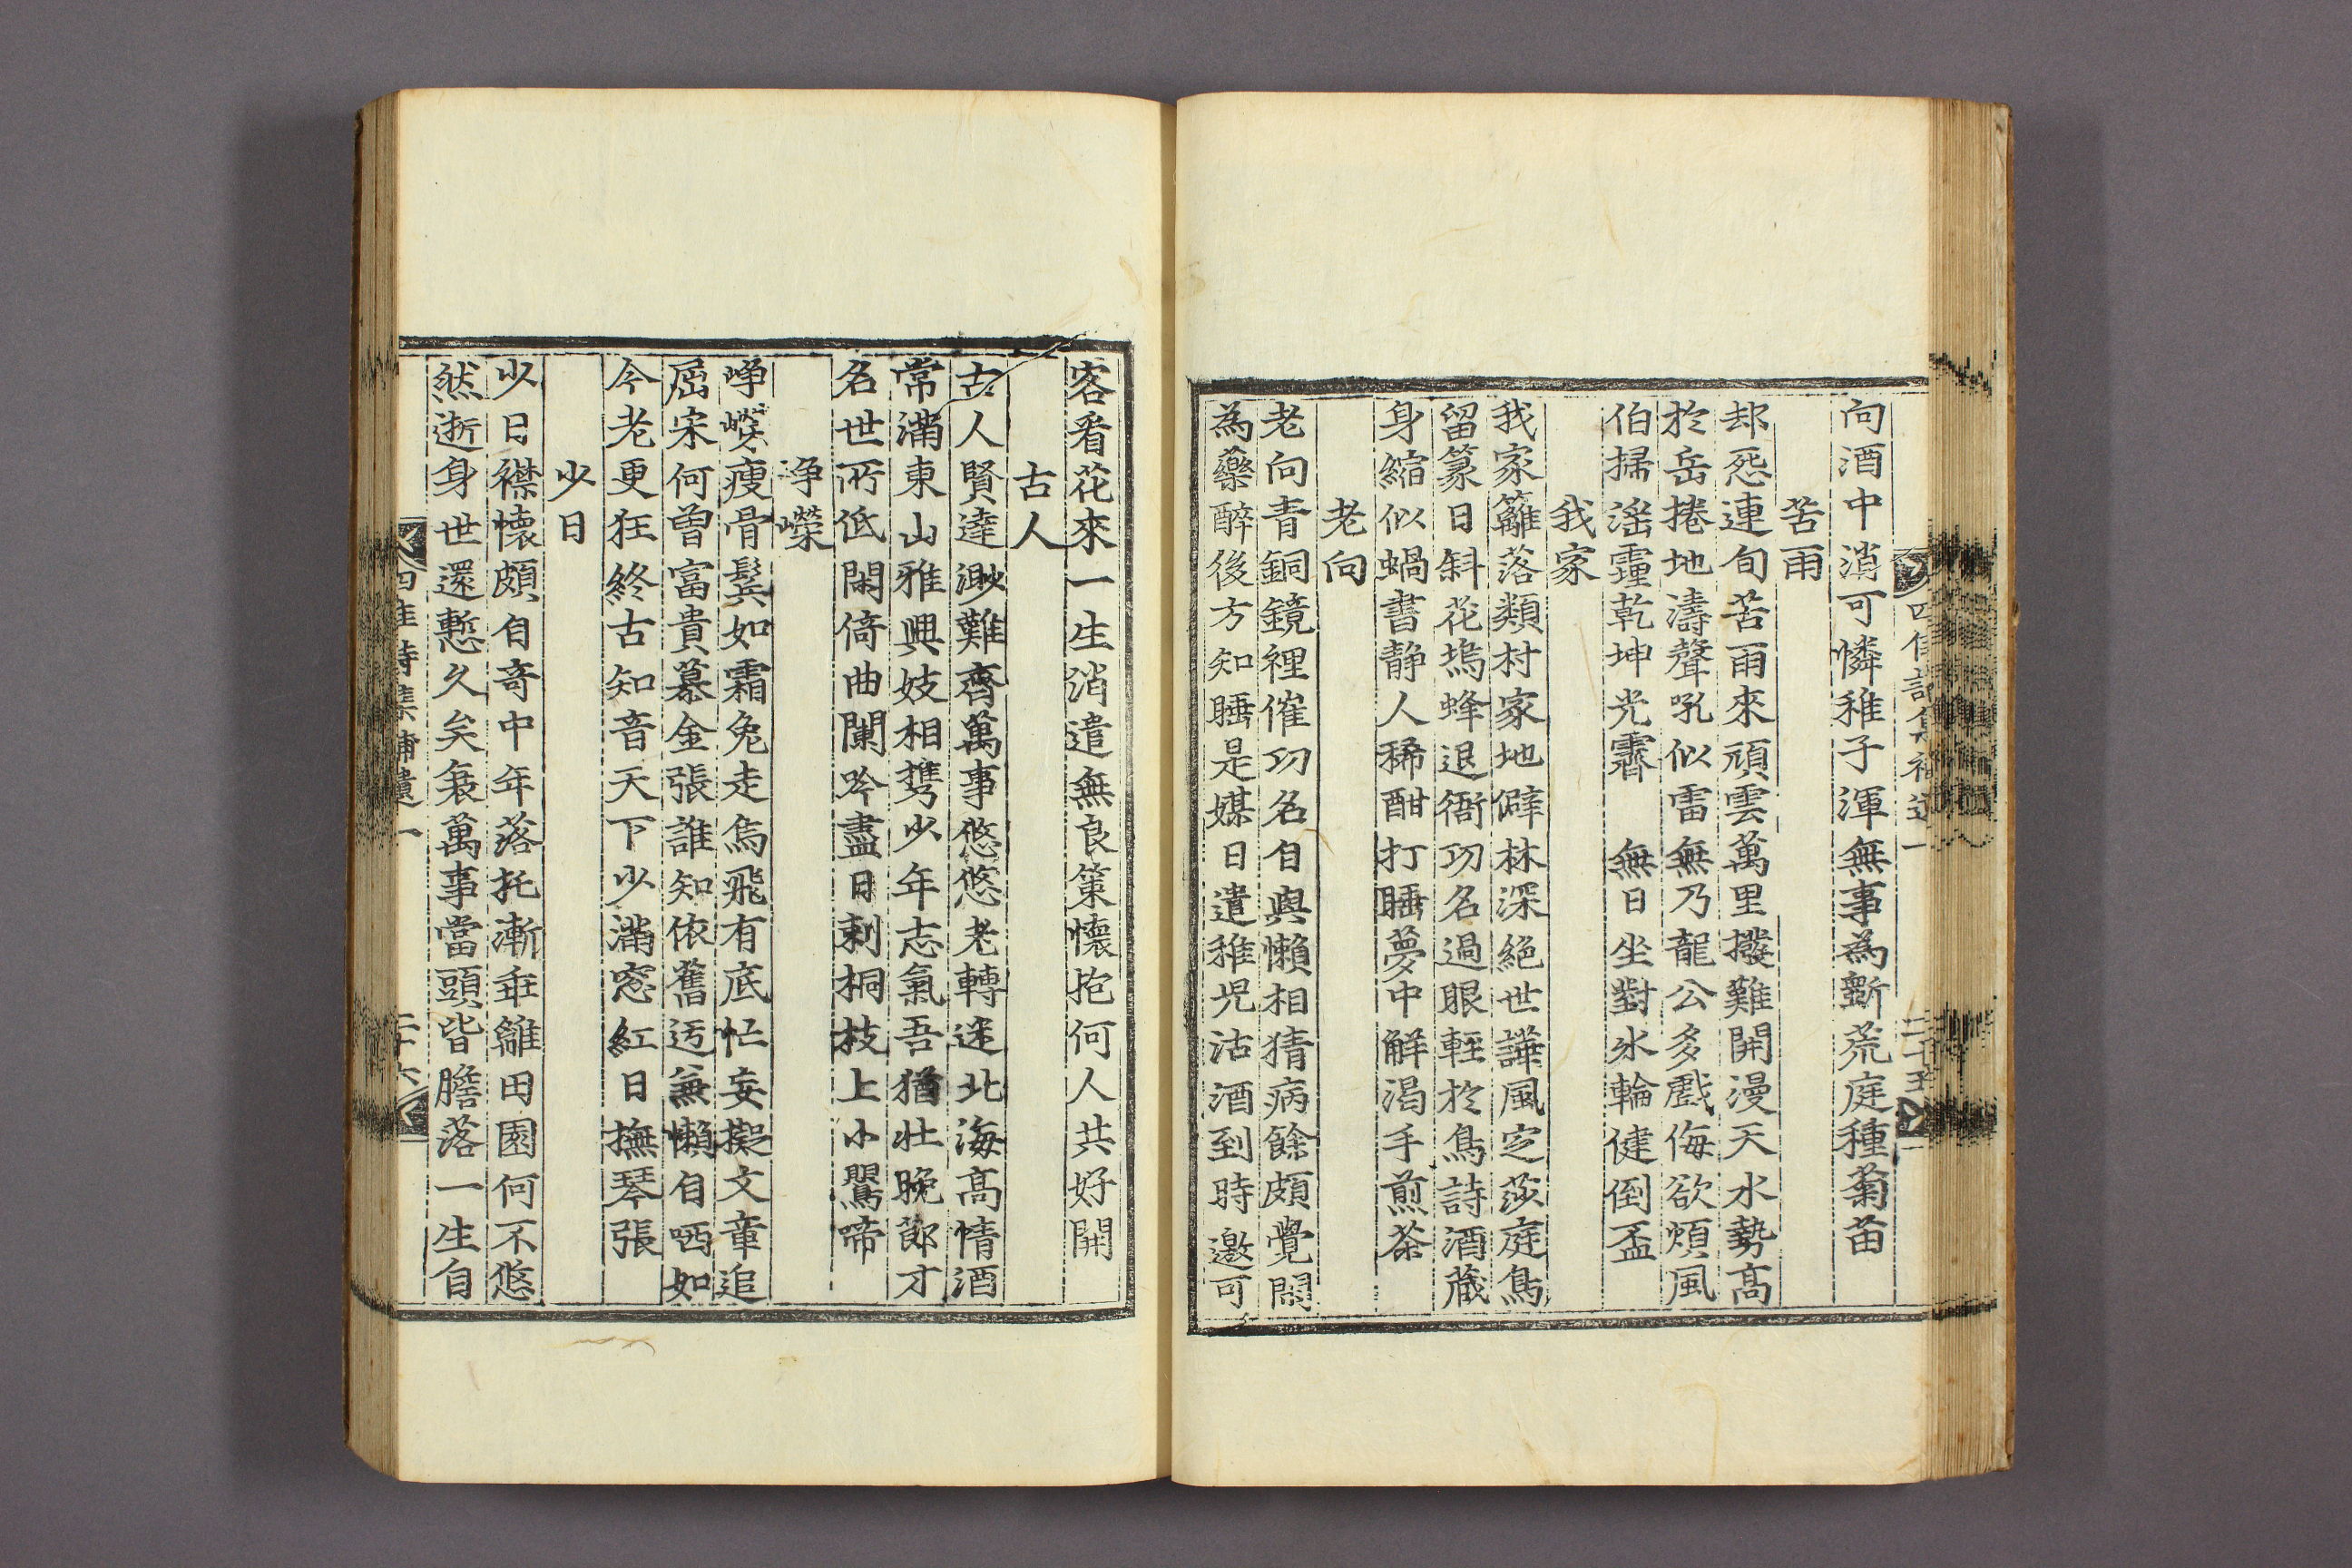 四佳詩集補遺一
二十五
向酒中消可憐稚子渾無事為斸荒庭種菊苗
苦雨
却恐連旬苦雨來頑雲萬里撥難開漫天水勢高
於岳捲地濤聲吼似雷無乃龍公多戲侮欲煩風
伯掃滛霾乾坤光霽無日坐對氷輪健倒盃
我家
我家籬落類村家地僻林深絕世譁風定莎庭鳥
留篆日斜花塢蜂退衙功名過眼輕於鳥詩酒藏
身縮似蝸書静人稀酣打睡夢中解渴手煎茶
老向
老向青銅鏡裡催功名自與懶相猜病餘頗覺悶
為藥醉後方知睡是媒日遣稚児沽酒到時邀可
客看花來一生消遣無良策懷抱何人共好開
古人
古人賢達渺難齊萬事悠悠老轉迷北海高情酒
常滿東山雅興妓相携少年志氣吾猶壯晚節才
名世所低閑倚曲闌吟盡日刺桐枝上小鸎啼
崢嶸
崢嶸瘦骨鬂如霜兔走烏飛有底忙妄擬文章追
屈宋何曽富貴慕金張誰知依舊迃兼懶自哂如
今老更狂終古知音天下少滿窓紅日撫琴張
少日
少日襟懷頗自奇中年落托漸垂雛田園何不悠
然逝身世還慙久矣衰萬事當頭皆膽落一生自
四佳詩集補遺一
二十六